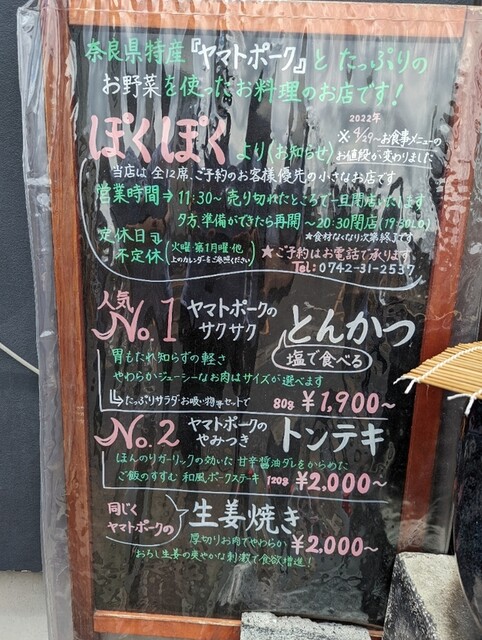 奈良県特産『ヤマトポーク』と たっぷりの
お野菜を使ったお料理のお店です！
ぽくぽく より(お知らせ)
2022年
※4/29〜お食事メニューの
お値段が変わりました
当店は 全12席、ご予約のお客様優先の小さなお店です
営業時間⇒11:30〜 売り切れたところで一旦閉店いたします
夕方、準備ができたら再開〜20:30閉店(19:30LO)
★食材なくなり次第終了です
定休日
不定休
(火曜・第1月曜・他
上のカレンダーをご参照ください)
★ご予約はお電話で承ります
Tel:0742-31-2537
人気
No.1 ヤマトポークの
サクサク とんかつ
塩で食べる
胃もたれ知らずの軽さ
やわらかジューシーなお肉はサイズが選べます
たっぷりサラダ・お吸い物等セットで 80g ¥1,900〜
No.2 ヤマトポークの
やみつき トンテキ
ほんのりガーリックの効いた 甘辛醤油ダレをからめた
ご飯のすすむ 和風ポークステーキ 120g ¥2,000〜
同じく
ヤマトポークの 生姜焼き
厚切りお肉でやわらか ¥2,000〜
おろし生姜の爽やかな刺激で食欲増進！